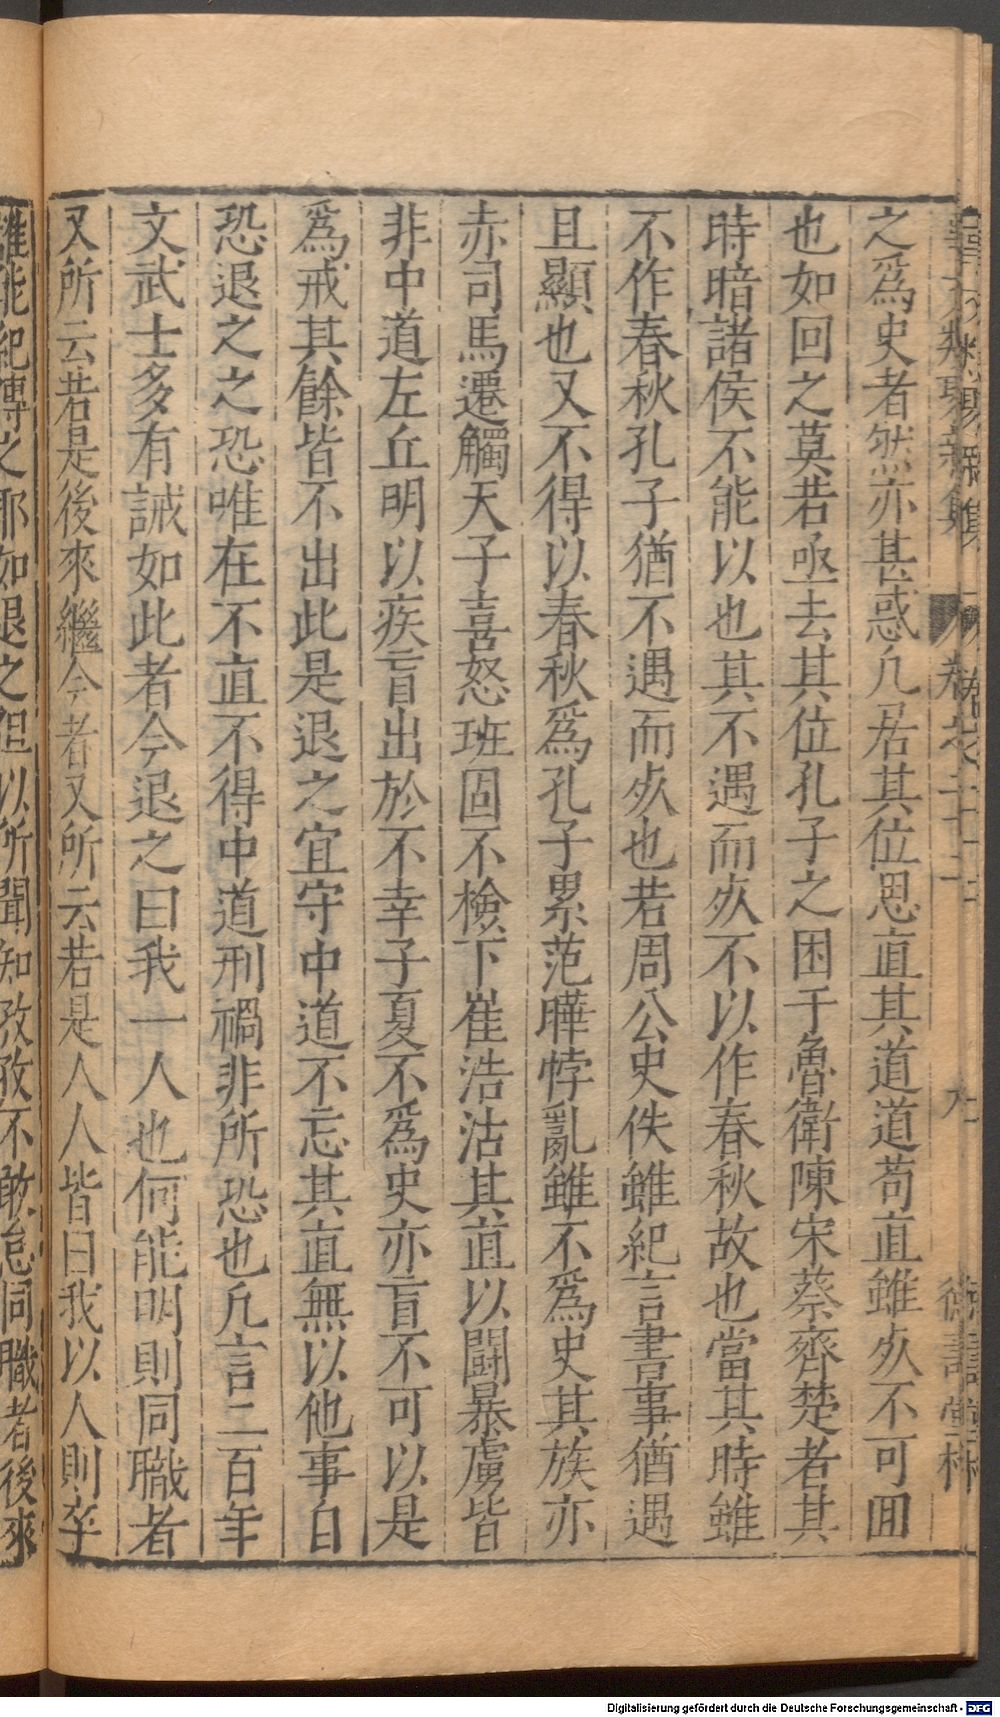 之爲史者然亦甚惑凡居其位思直其道道苟直雖死不可囬
也如回之莫若亟去其位孔子之困于魯衛陳宋蔡齊楚者其
時暗諸侯不能以也其不遇而死不以作春秋故也當其時雖
不作春秋孔子猶不遇而死也若周公史佚雖紀言書事猶遇
且顯也又不得以春秋爲孔子累范曄悖亂雖不爲史其族亦
赤司馬遷觸天子喜怒班固不檢下崔浩沽其直以鬬暴虜皆
非中道左丘明以疾盲出於不幸子夏不爲史亦盲不可以是
爲戒其餘皆不出此是退之宜守中道不忘其直無以他事自
恐退之之恐唯在不直不得中道刑禍非所恐也凡言二百年
文武士多有誠如此者今退之曰我一人也何能明則同職者
又所云若是後來繼今者又所云若是人人皆曰我以人則卒
誰能紀傳之耶如退之但以所聞知孜孜不敢怠同職者後來
卷之二十二
德壽堂梓
Digitalisierung gefördert durch die Deutsche Forschungsgemeinschaft - DFG